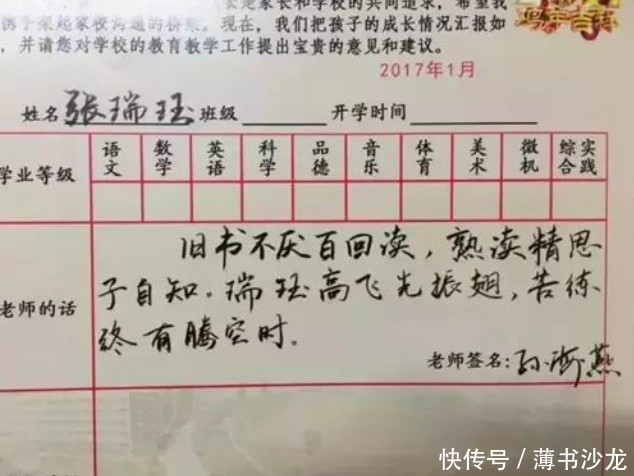 长是家长和学校的共同追求，希望我
携手架起家校沟通的桥梁。现在，我们把孩子的成长情况汇报如
，并请您对学校的教育教学工作提出宝贵的意见和建议。
2017年1月
姓名 张瑞珏 班级 开学时间
学业等级 语文 数学 英语 科学 品德 音乐 体育 美术 微机 综合实践
老师的话
旧书不厌百回读，熟读精思
子自知。瑞珏高飞先振翅，苦练
终有腾空时。
老师签名：孙济燕
快传号／薄书沙龙